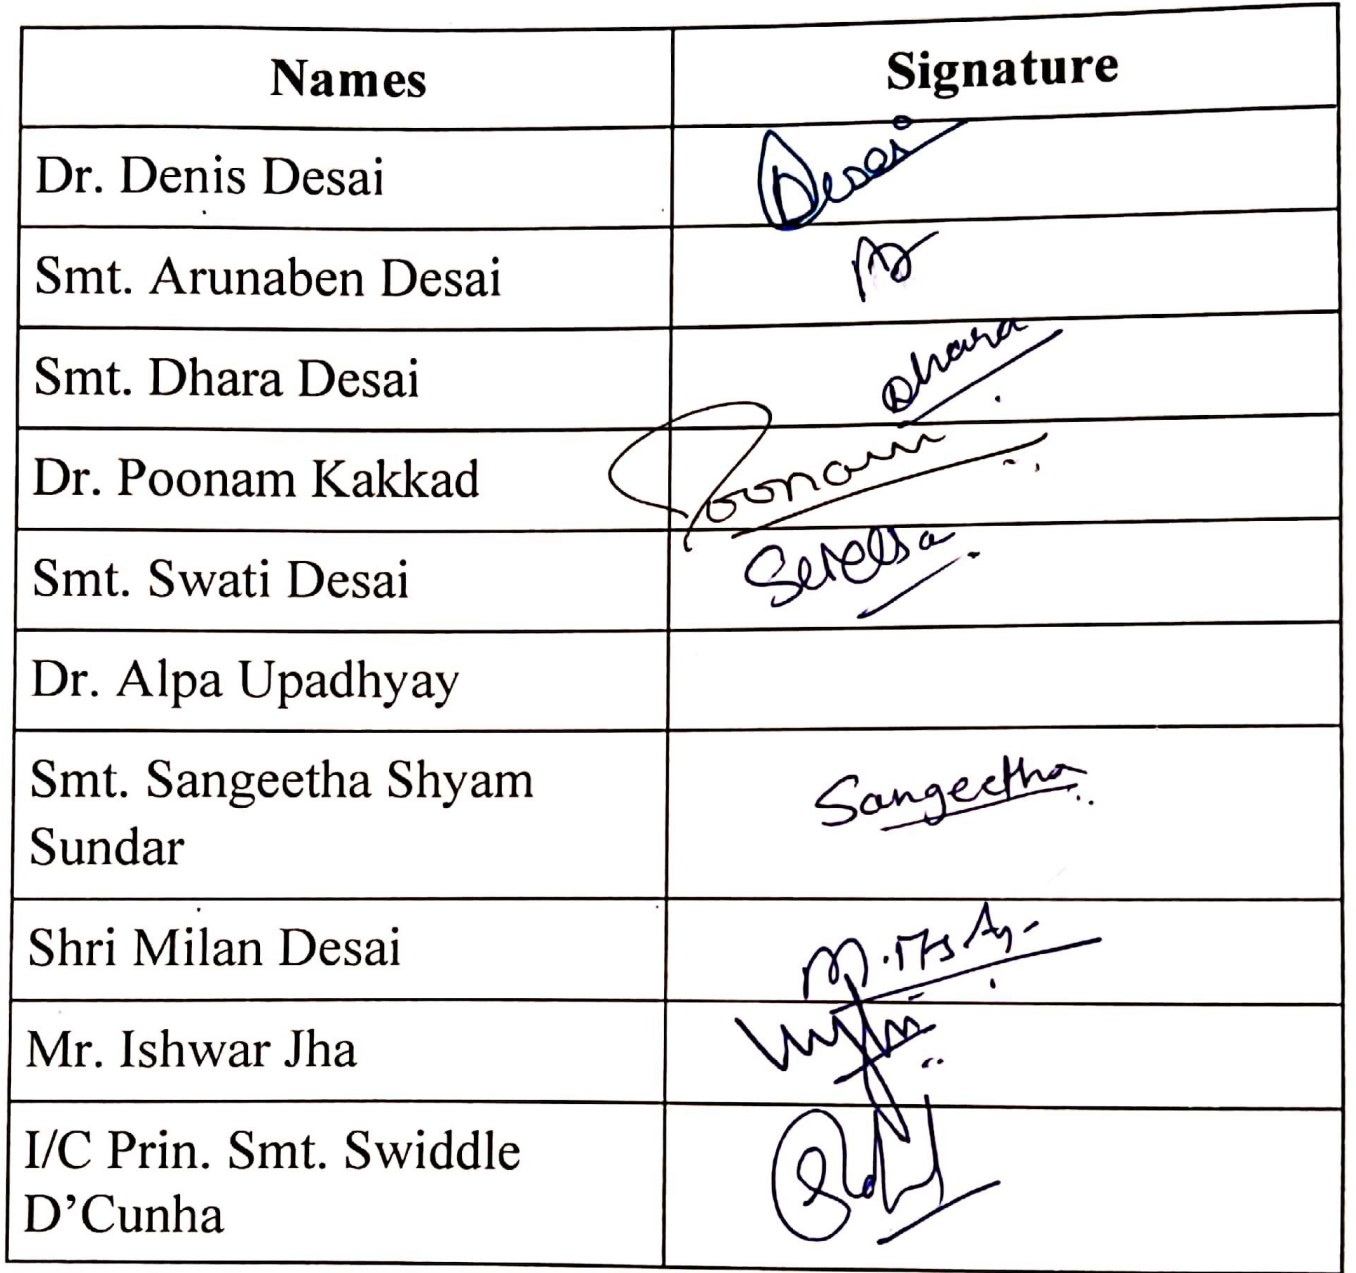 Names Signature
Dr. Denis Desai Desai
Smt. Arunaben Desai
Smt. Dhara Desai Dhara
Dr. Poonam Kakkad Poonam
Smt. Swati Desai
Dr. Alpa Upadhyay
Smt. Sangeetha Shyam
Sundar
Sangeetha
Shri Milan Desai
Mr. Ishwar Jha
I/C Prin. Smt. Swiddle
D’Cunha